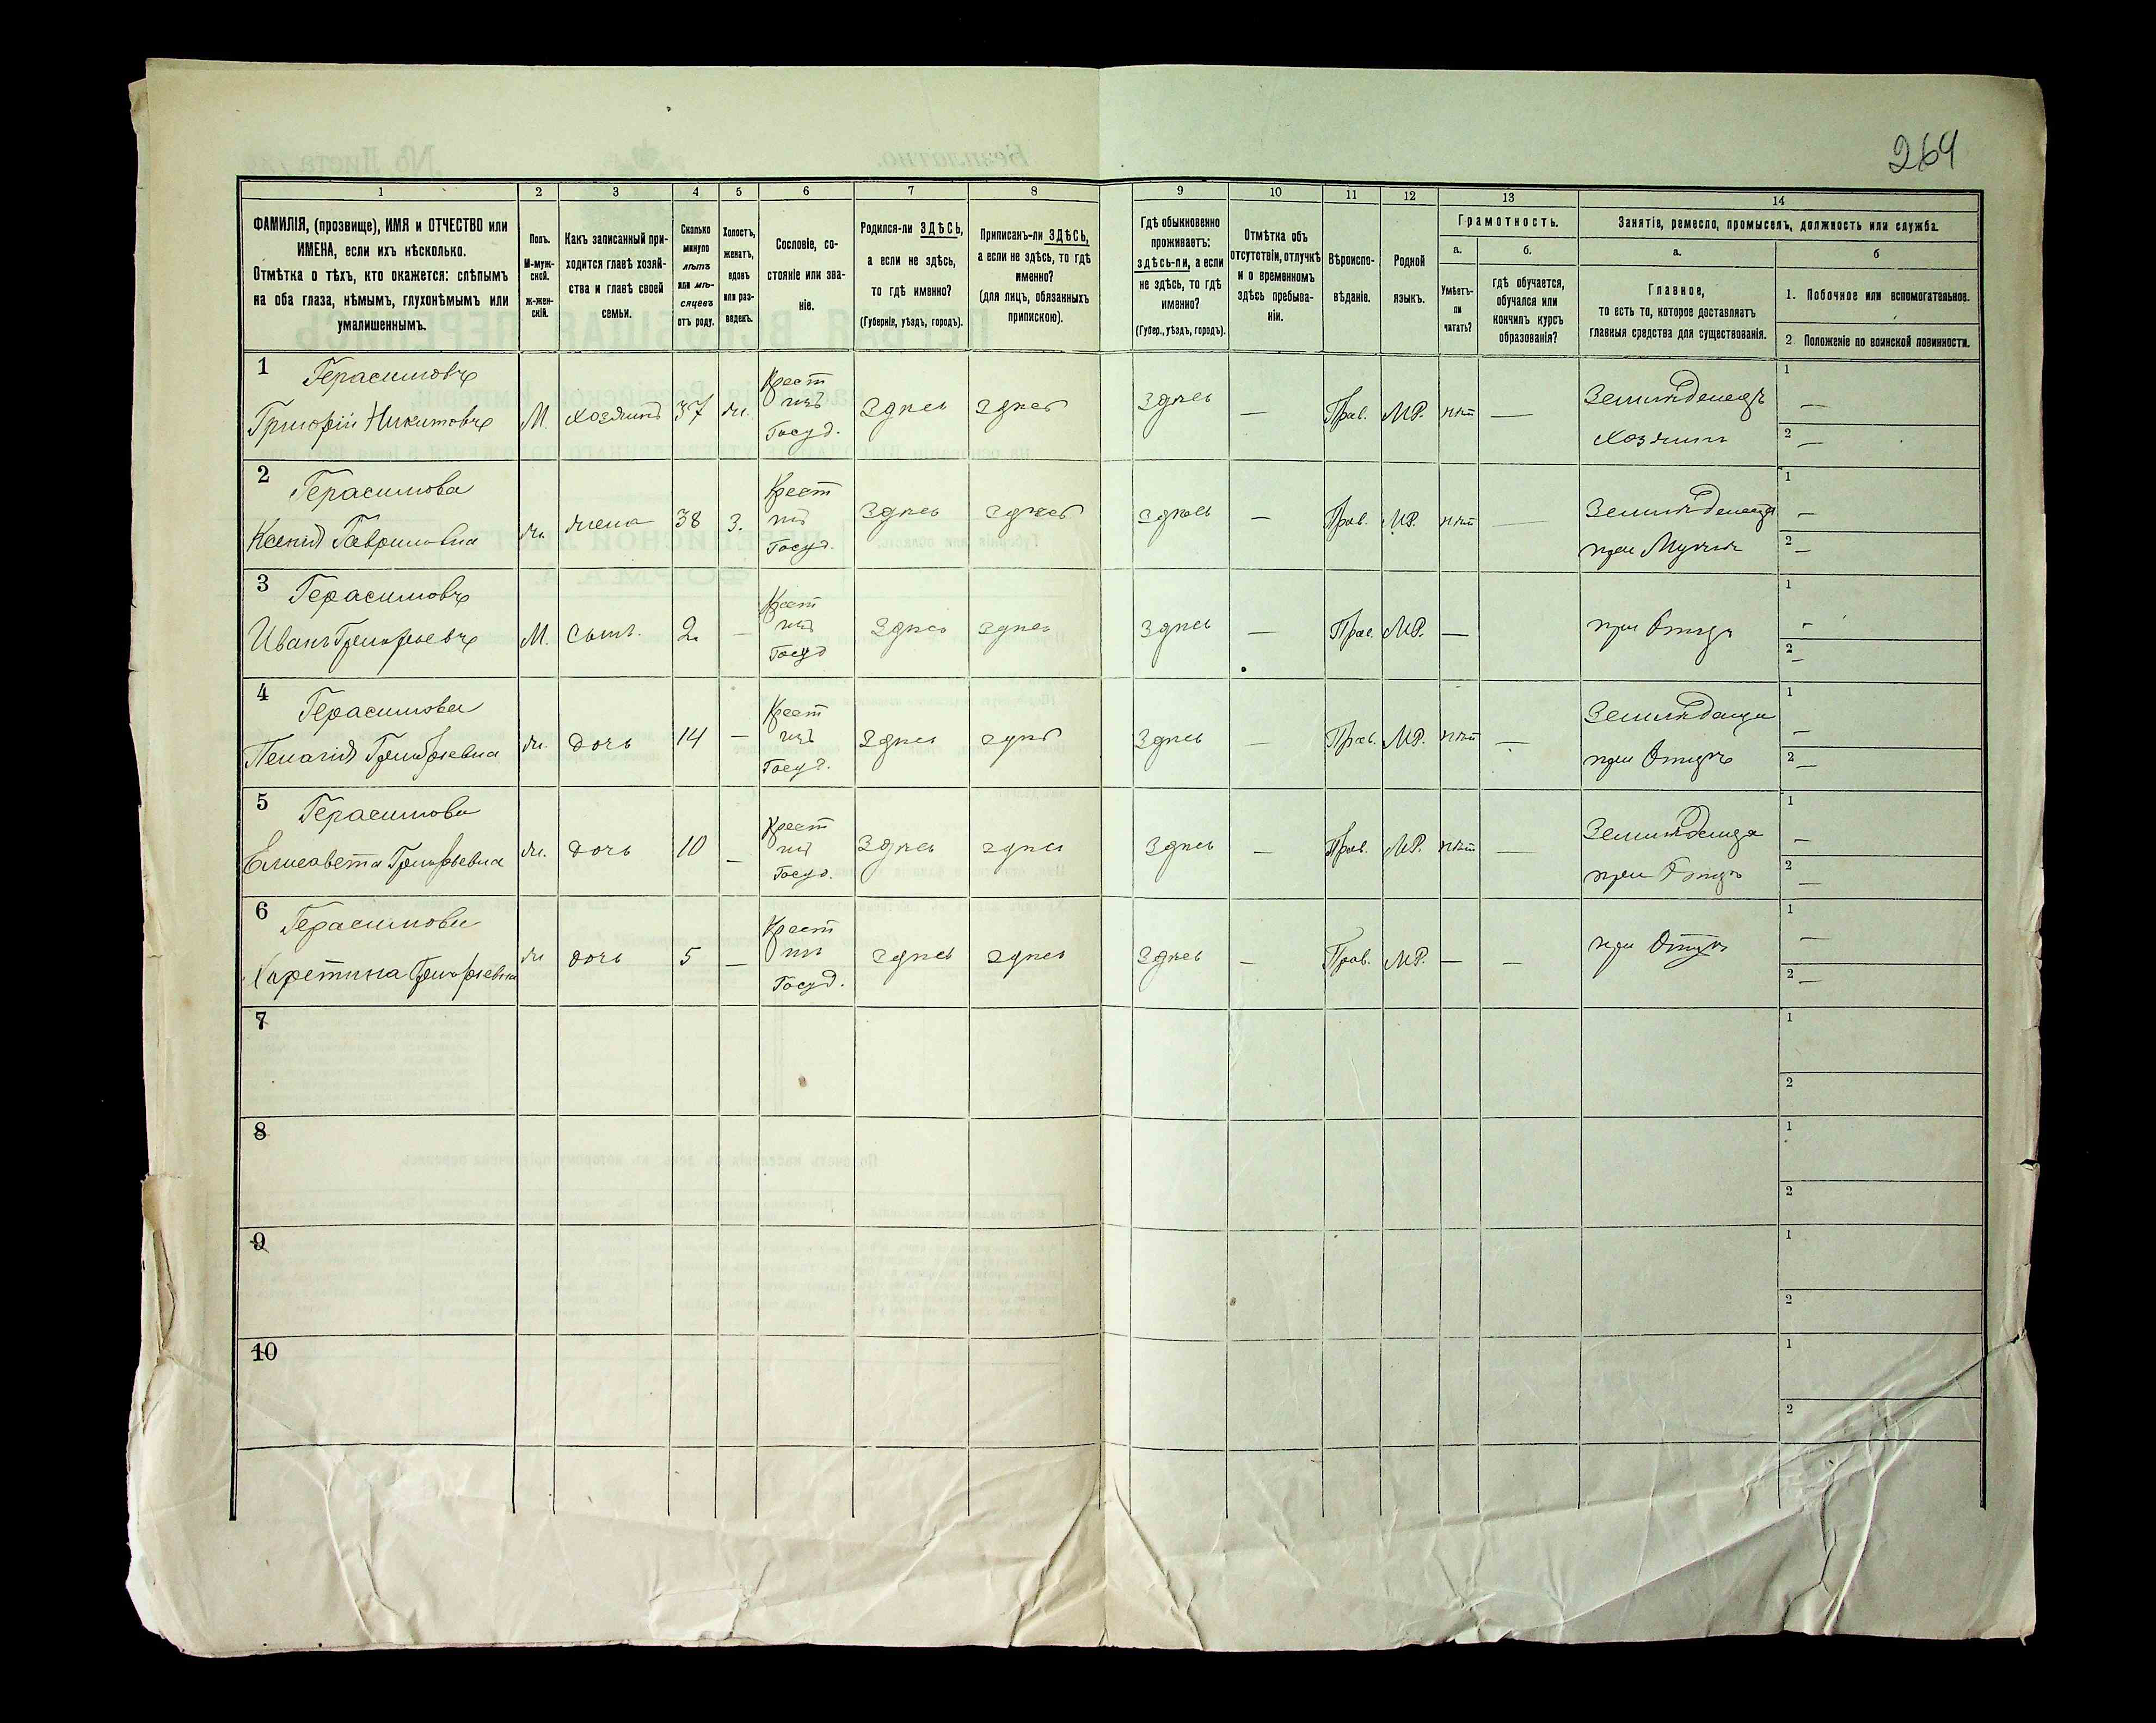 264
1 2 3 4 5 6 7 8 9 10 11 12 13 14
ФАМИЛІЯ, (прозвище), ИМЯ и ОТЧЕСТВО или
ИМЕНА, если ихъ нѣсколько.
Отмѣтка о тѣхъ, кто окажется: слѣпымъ
на оба глаза, нѣмымъ, глухонѣмымъ или
умалишеннымъ.
Полъ.
М-муж-
ской.
ж-жен-
скій.
Какъ записанный при-
ходится главѣ хозяй-
ства и главѣ своей
семьи.
Сколько
минуло
лѣтъ
или мѣ-
сяцевъ
отъ роду.
Холостъ,
женатъ,
вдовъ
или раз-
веденъ.
Сословіе, со-
стояніе или зва-
ніе.
Родился-ли ЗДѢСЬ,
а если не здѣсь,
то гдѣ именно?
(Губернія, уѣздъ, городъ).
Приписанъ-ли ЗДѢСЬ,
а если не здѣсь, то гдѣ
именно?
(для лицъ, обязанныхъ
припискою).
Гдѣ обыкновенно
проживаетъ:
здѣсь-ли, а если
не здѣсь, то гдѣ
именно?
(Губер., уѣздъ, городъ).
Отмѣтка объ
отсутствіи, отлучкѣ
и о временномъ
здѣсь пребыва-
ніи.
Вѣроиспо-
вѣданіе.
Родной
языкъ.
Грамотность.
а.
Умѣетъ-
ли
читать?
б.
гдѣ обучается,
обучался или
кончилъ курсъ
образованія?
Занятіе, ремесло, промыселъ, должность или служба.
а.
Главное,
то есть то, которое доставляетъ
главныя средства для существованія.
б
1. Побочное или вспомогательное.
2 Положеніе по воинской повинности.
1 Герасимовъ
Григорій Никитовъ М. хозяинъ 37 ж. Крест изъ Госуд. Здѣсь здѣсь Здѣсь — Прав. МР. нѣт — Земледѣлецъ хозяинъ 1 — 2 —
2 Герасимова
Ксенія Гавриловна ж. жена 38 З. Крест изъ Госуд. Здѣсь здѣсь здѣсь — Прав. МР. нѣт — при Мужѣ 1 — 2 —
3 Герасимовъ
Иванъ Григорьевъ М. сынъ. 2 — Крест изъ Госуд Здѣсь здѣсь Здѣсь — Прав. МР. — при Отцѣ 1 — 2 —
4 Герасимова
Пелагія Григорьевна ж. дочь 14 — Крест изъ Госуд. Здѣсь здѣсь Здѣсь — Прав. МР. нѣт — при Отцѣ 1 — 2 —
5 Герасимова
Елисавета Григорьевна ж. дочь 10 — Крест изъ Госуд. Здѣсь здѣсь Здѣсь — Прав. МР. нѣт — при Отцѣ 1 — 2 —
6 Герасимова
Харетина Григорьевна ж дочь 5 — Крест изъ Госуд. здѣсь здѣсь Здѣсь — Прав. МР. — — при Отцѣ 1 — 2 —
7 1 2
8 1 2
9 1 2
10 1 2